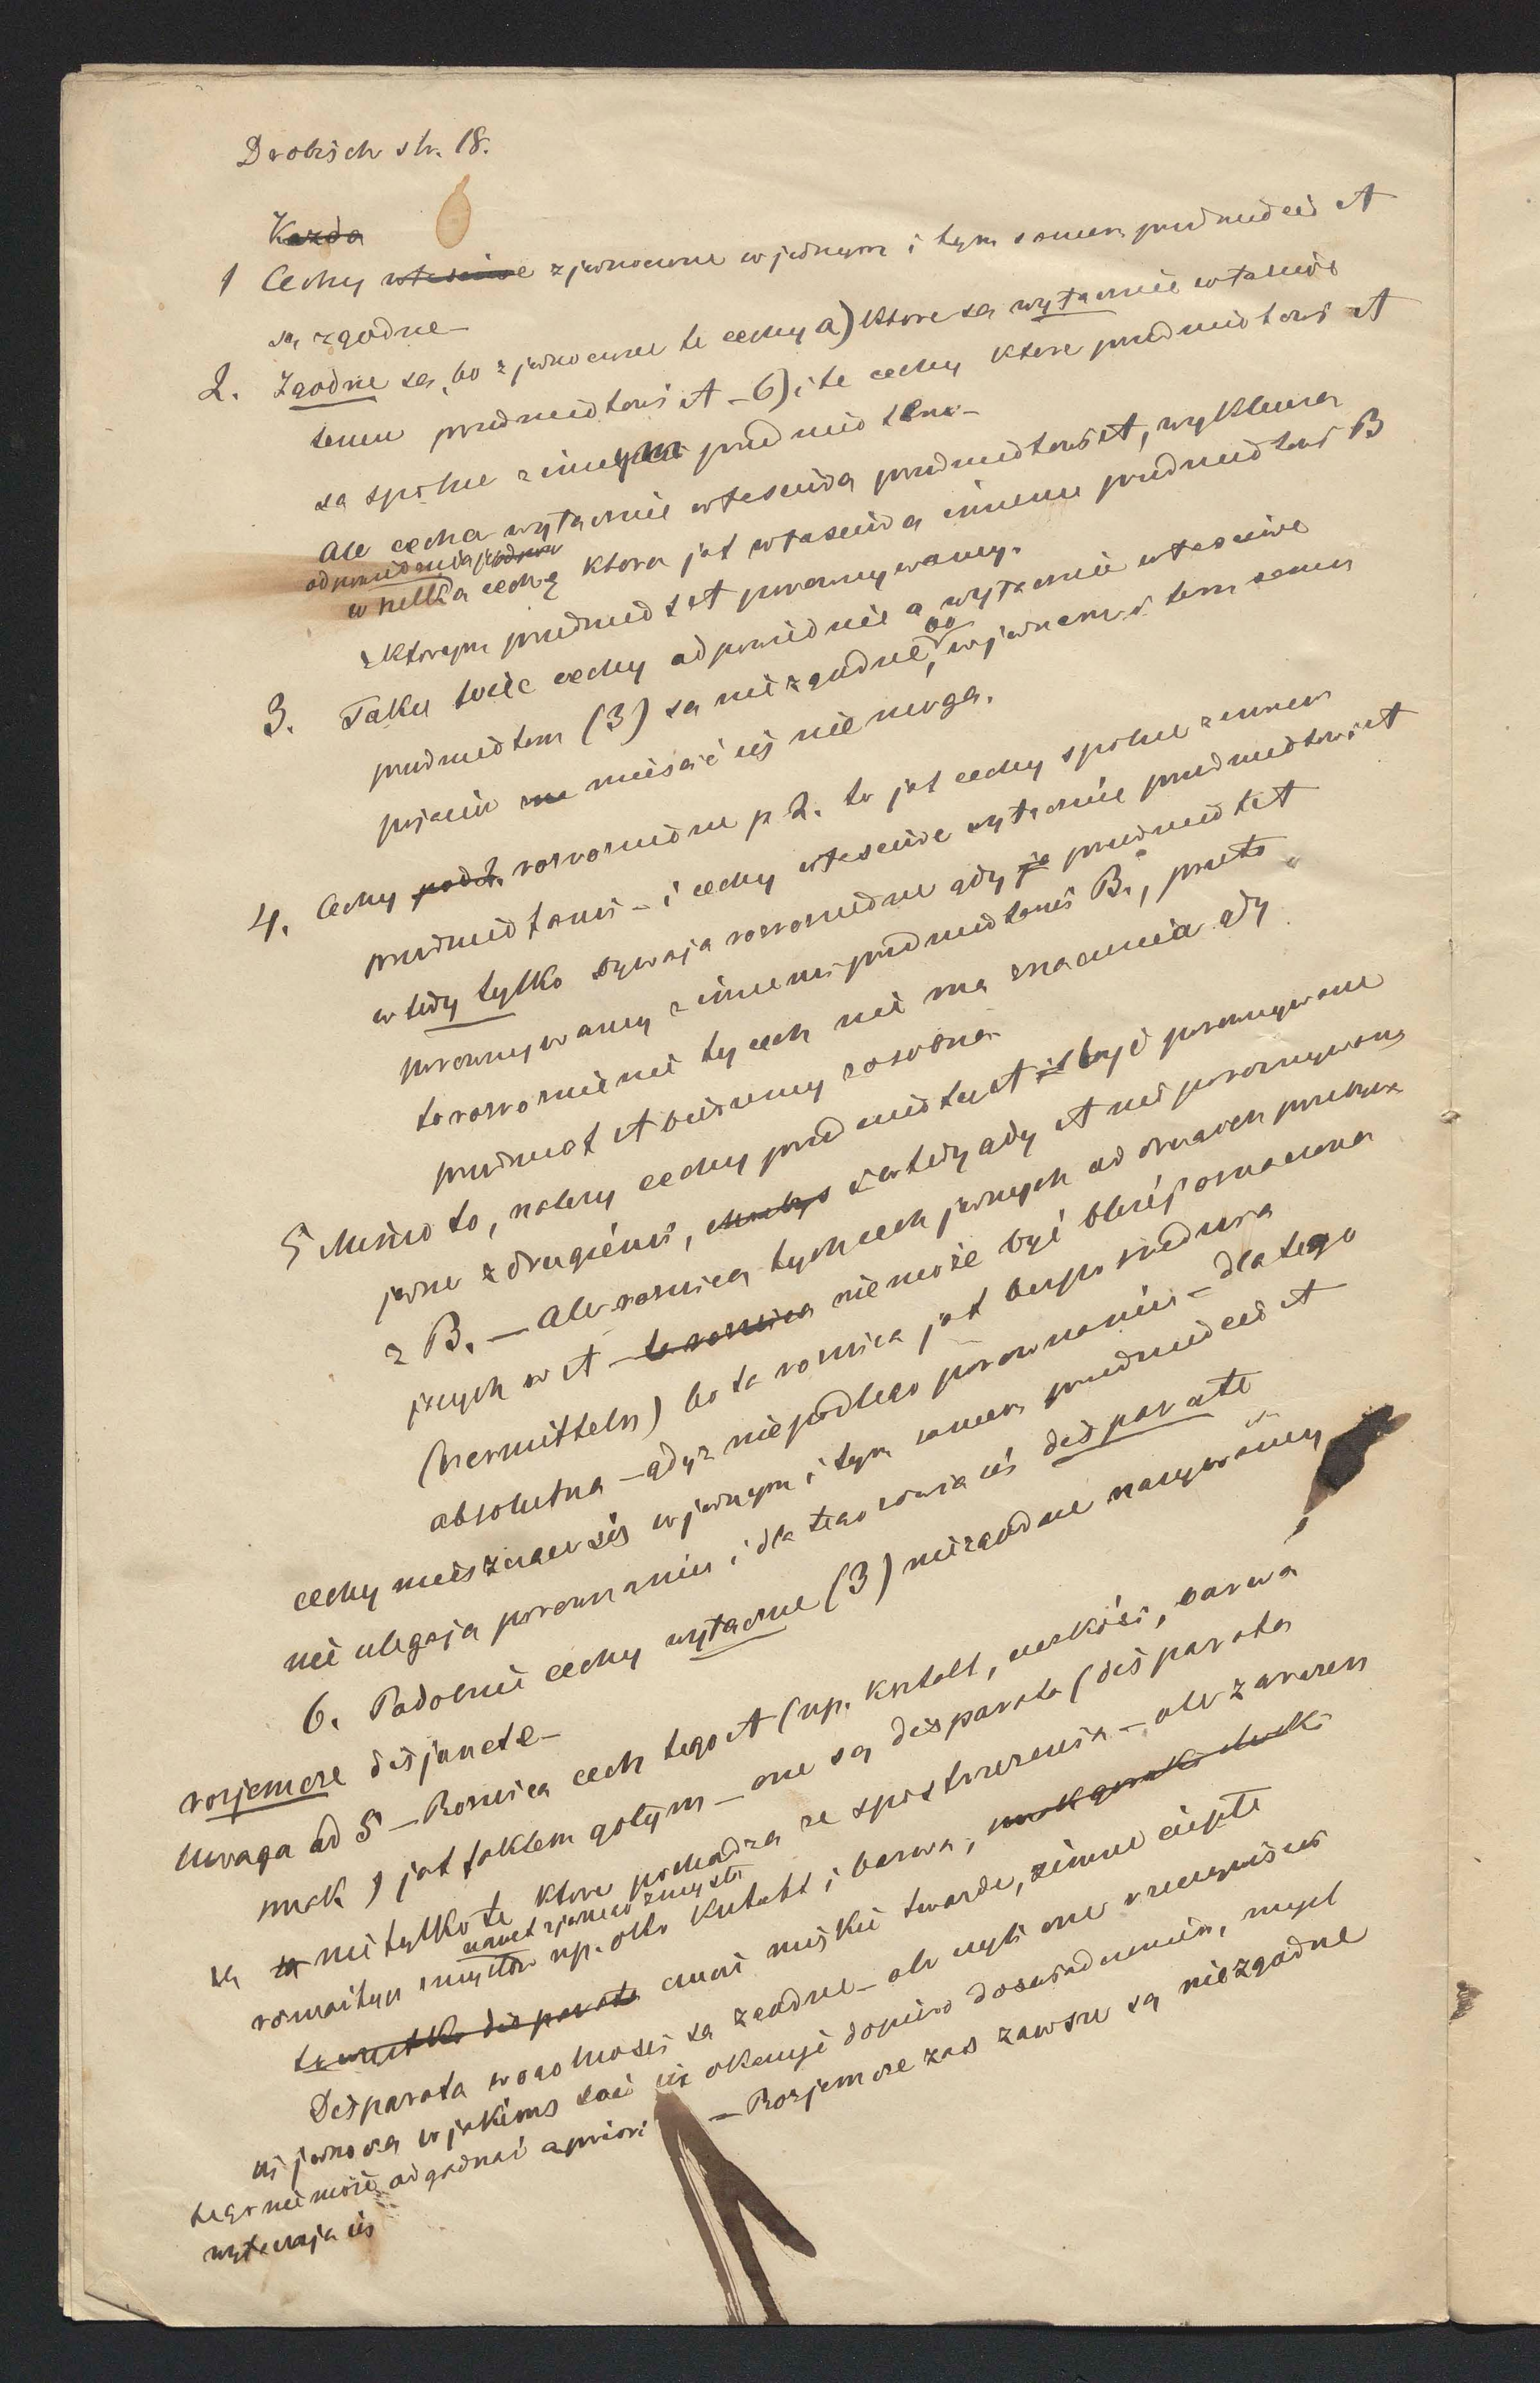 Drobisch str. 18.
Kazda
1 Cechy własciwe zjednoczone w jednym i tym samem przedmiocie A
są zgodne –
2. Zgodne są, bo zjednoczone te cechy a) ktore są wyłacznie własciwe
temu przedmiotowi A – b) i te cechy ktore przedmiotowi A
są spolne z innym przedmiotem –
Ale cecha wyłacznie własciwa przedmiotowi A, wyklucza
odpowiednia jej
wszelka cechę ktora jest własciwa innemu przedmiotowi B
z ktorym przedmiot A porownywamy.
3. Takie więc cechy odpowiednie a wyłacznie własciwe
przedmiotom (3) są niezgodne, bo w jednem i tem samem
pojęciu miescić się nie mogą.
4. Cechy pod 2. rozrozniedne p 2. to jest cechy spolne z innem
przedmiotami – i cechy własciwe wyłacznie przedmiotowi A
wtedy tylko bywają rozrozniedne gdy ja przedmiot A
porownywamy z innemi przedmiotami B., przeto
to rozroznienie tych cech nie ma znaczenia gdy
przedmiot A bierzemy z osobna
5 Mimo to, należy cechy przedmiotu A być porownywane
jedne z drugiemi, i wtedy gdy A nie porownywamy
z B. – Ale roznica tych cech jednych od drugich
jących w A – ta roznica nie może być bliżej oznaczona
(vermitteln) bo ta roznica jest bezposrednia
absolutna – gdyż nie podlega porownaniu – dla tego
cechy mieszczące się w jednym i tym samem przedmiocie A
nie ulegają porownaniu i dla tego zowią się disparate
6. Podobnie cechy wyłaczne (3) niezgodne nazywamy
rozjemcze disjuncte –
Uwaga ad 5 – Roznica cech tego A (np. kształt, cięzkość, barwa
smak) jest faktem gołym – one są disparata (disparata
są nie tylko te ktore pochodzą ze spostrzezenia – ale zarazem
nawet z jednego zmysłu
rozmaitych zmysłow np. oko kształt i barwa,
to wszystko disparata czucie miękkie twarde, zimne ciepłe
Disparata w ogolnosci są zgodne – ale czyli one rzeczywiscie
się jednoczą w jakiems coś się okazuje dopiero doswiadczeniem, mysl
tego nie może odgadnąć apriori – Rozjemcze zas zawsze są niezgodne
wyłaczają się